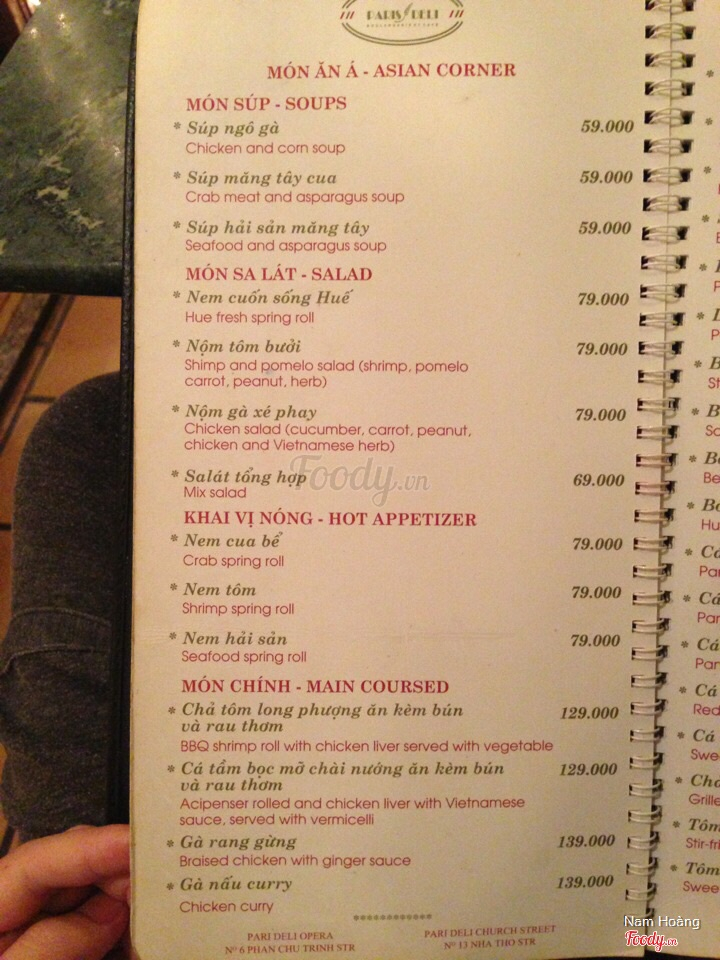 PARIS DELI
MÓN ĂN Á - ASIAN CORNER
MÓN SÚP - SOUPS
* Súp ngô gà 59.000
Chicken and corn soup
* Súp măng tây cua 59.000
Crab meat and asparagus soup
* Súp hải sản măng tây 59.000
Seafood and asparagus soup
MÓN SA LÁT - SALAD
* Nem cuốn sống Huế 79.000
Hue fresh spring roll
* Nộm tôm bưởi 79.000
Shimp and pomelo salad (shrimp, pomelo
carrot, peanut, herb)
* Nộm gà xé phay 79.000
Chicken salad (cucumber, carrot, peanut,
chicken and Vietnamese herb)
* Salát tổng hợp 69.000
Mix salad
Foody.vn
KHAI VỊ NÓNG - HOT APPETIZER
* Nem cua bể 79.000
Crab spring roll
* Nem tôm 79.000
Shrimp spring roll
* Nem hải sản 79.000
Seafood spring roll
MÓN CHÍNH - MAIN COURSED
* Chả tôm long phượng ăn kèm bún 129.000
và rau thơm
BBQ shrimp roll with chicken liver served with vegetable
* Cá tầm bọc mỡ chài nướng ăn kèm bún 129.000
và rau thơm
Acipenser rolled and chicken liver with Vietnamese
sauce, served with vermicelli
* Gà rang gừng 139.000
Braised chicken with ginger sauce
* Gà nấu curry 139.000
Chicken curry
PARI DELI OPERA
Nº 6 PHAN CHU TRINH STR
PARI DELI CHURCH STREET
Nº 13 NHA THO STR
* Cá
* Cá
* Cá
* Cá
Red
* Cá
Swee
* Chả
Grille
* Tôm
Stir-fri
* Tôm
Swee
Nam Hoàng
Foody.vn